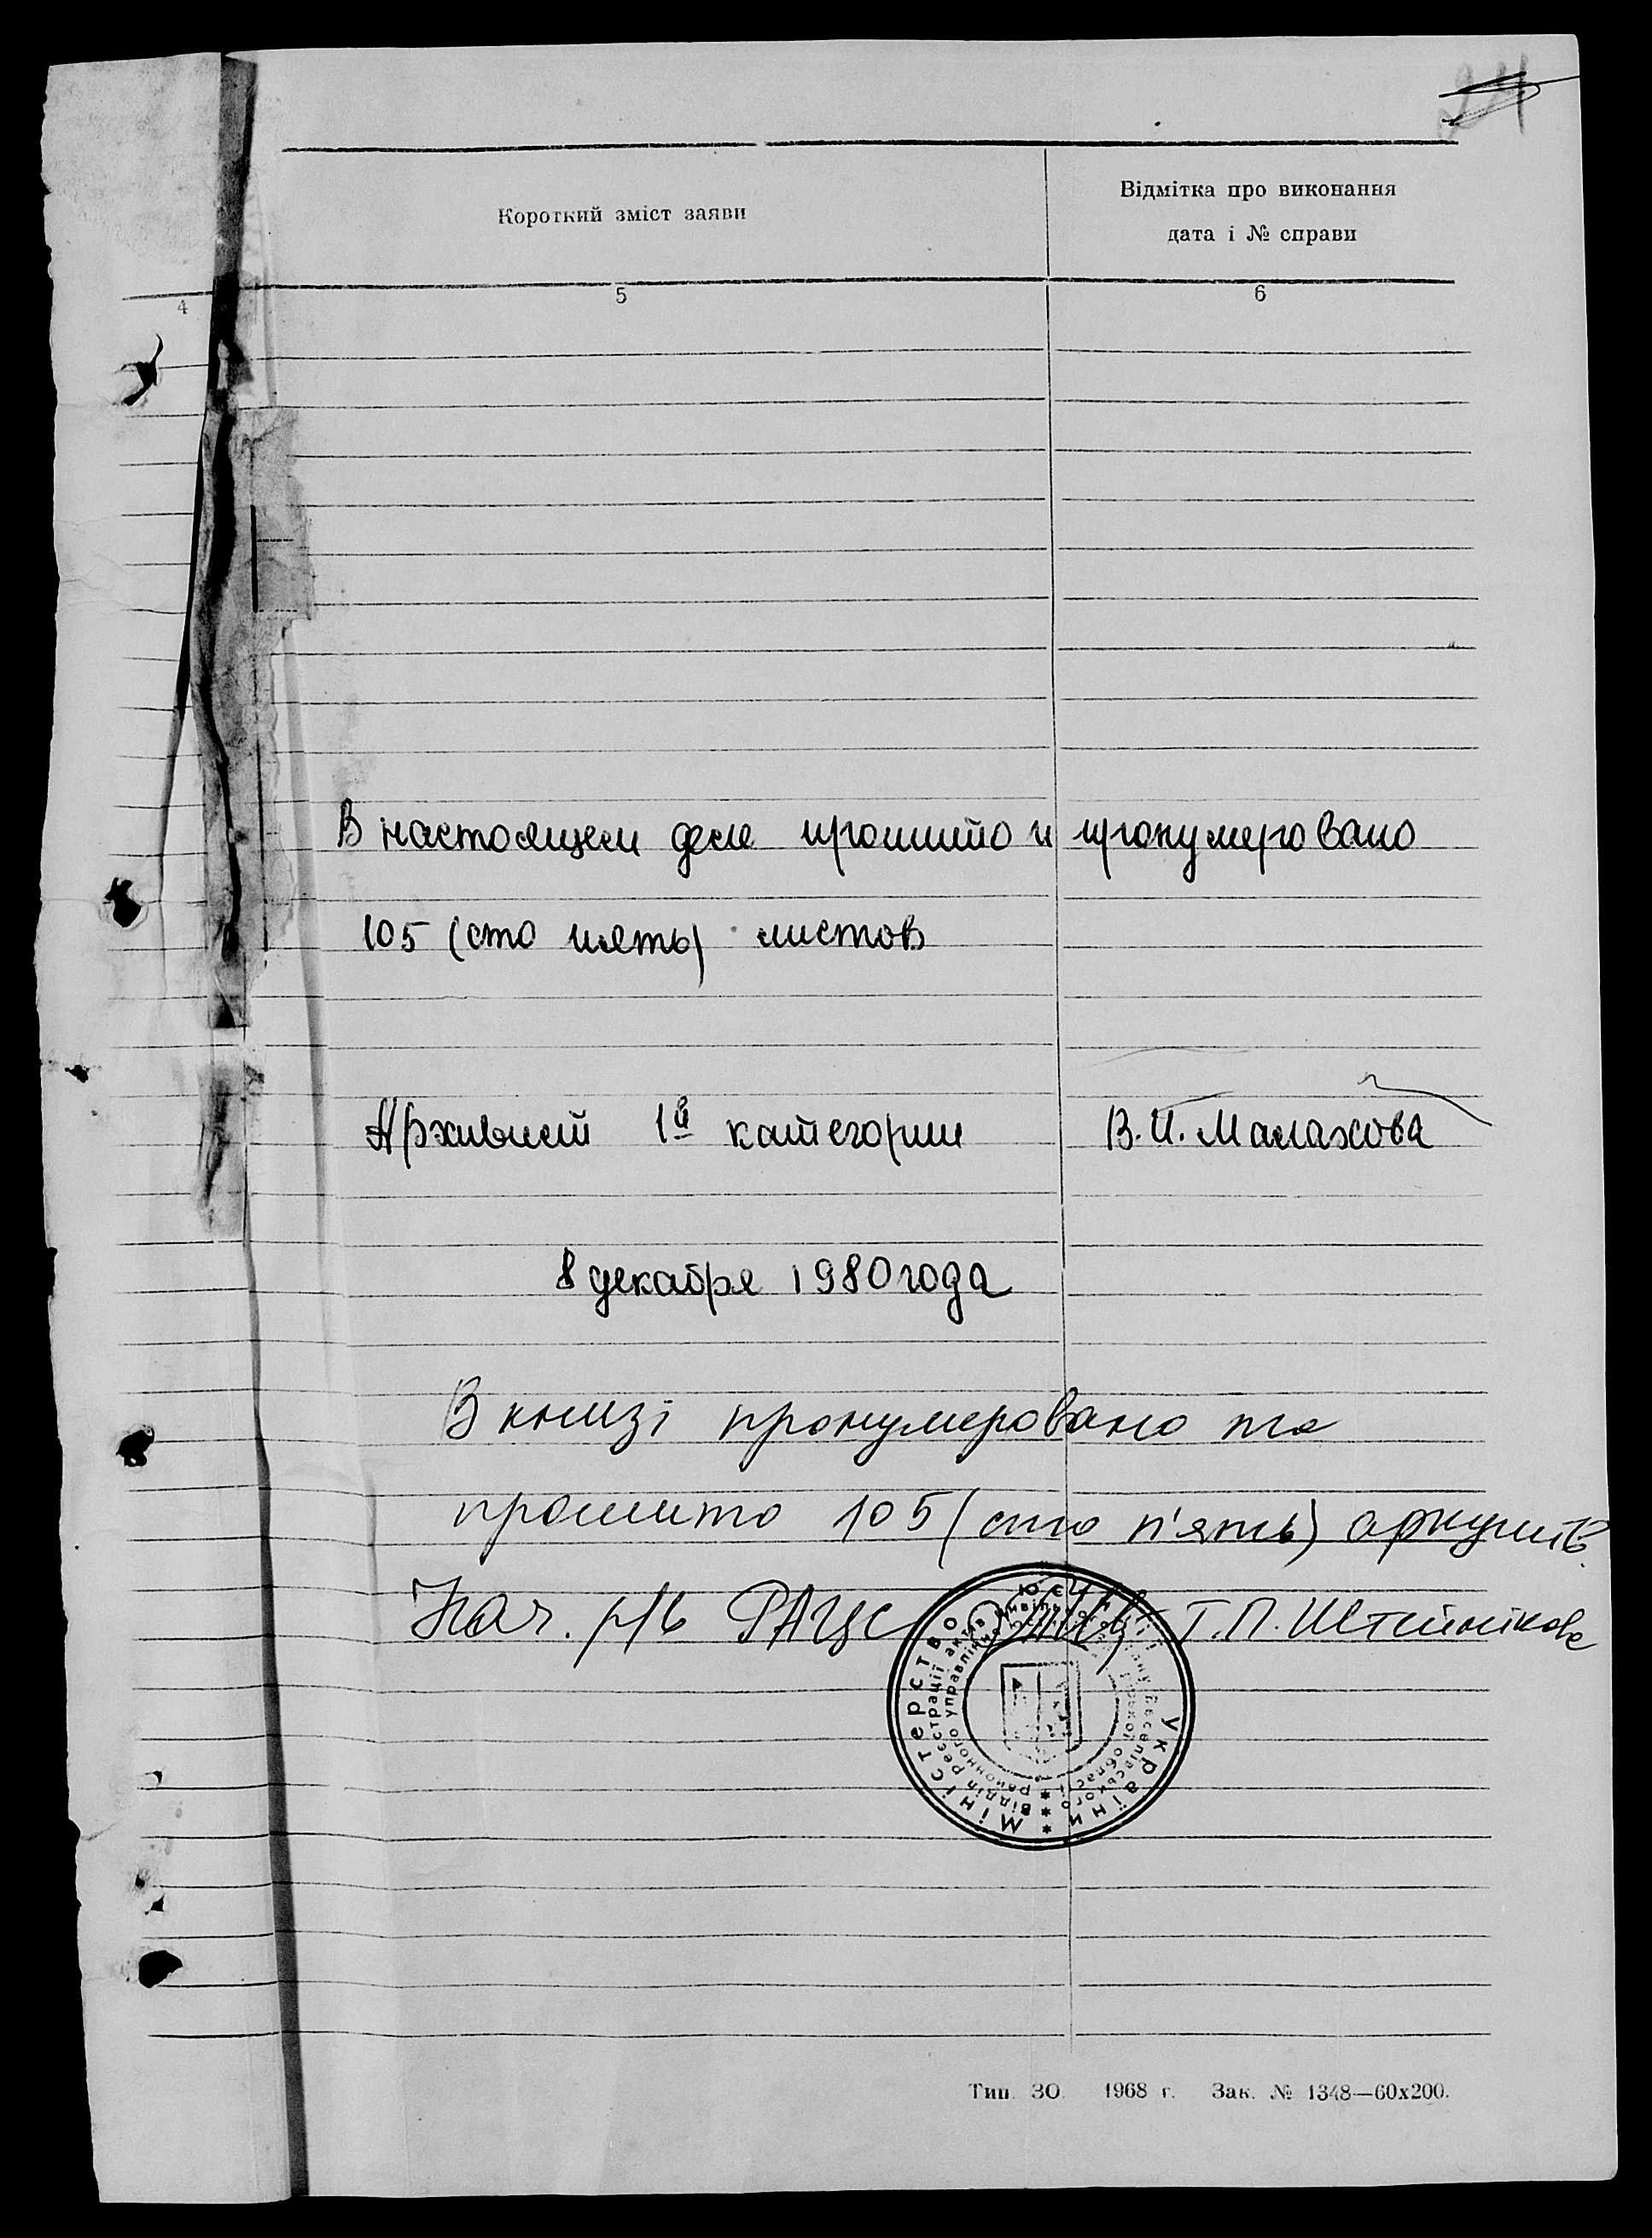 Короткий зміст заяви
Відмітка про виконання
дата і № справи
4
5
6
В настоящем деле прошито и пронумеровано
105 (сто пять) листов
Архивист 1й категории В.И. Малахова
8 декабря 1980 года
В книзі пронумеровано та
прошито 105 (сто п'ять) аркушів.
Нач. р/в РАЦС Т.П. Штейнікова
Міністерство юстиції України
Відділ реєстрації актів цивільного стану Веселівського
районного управління області
Тип. ЗО. 1968 г. Зак. № 1348—60х200.